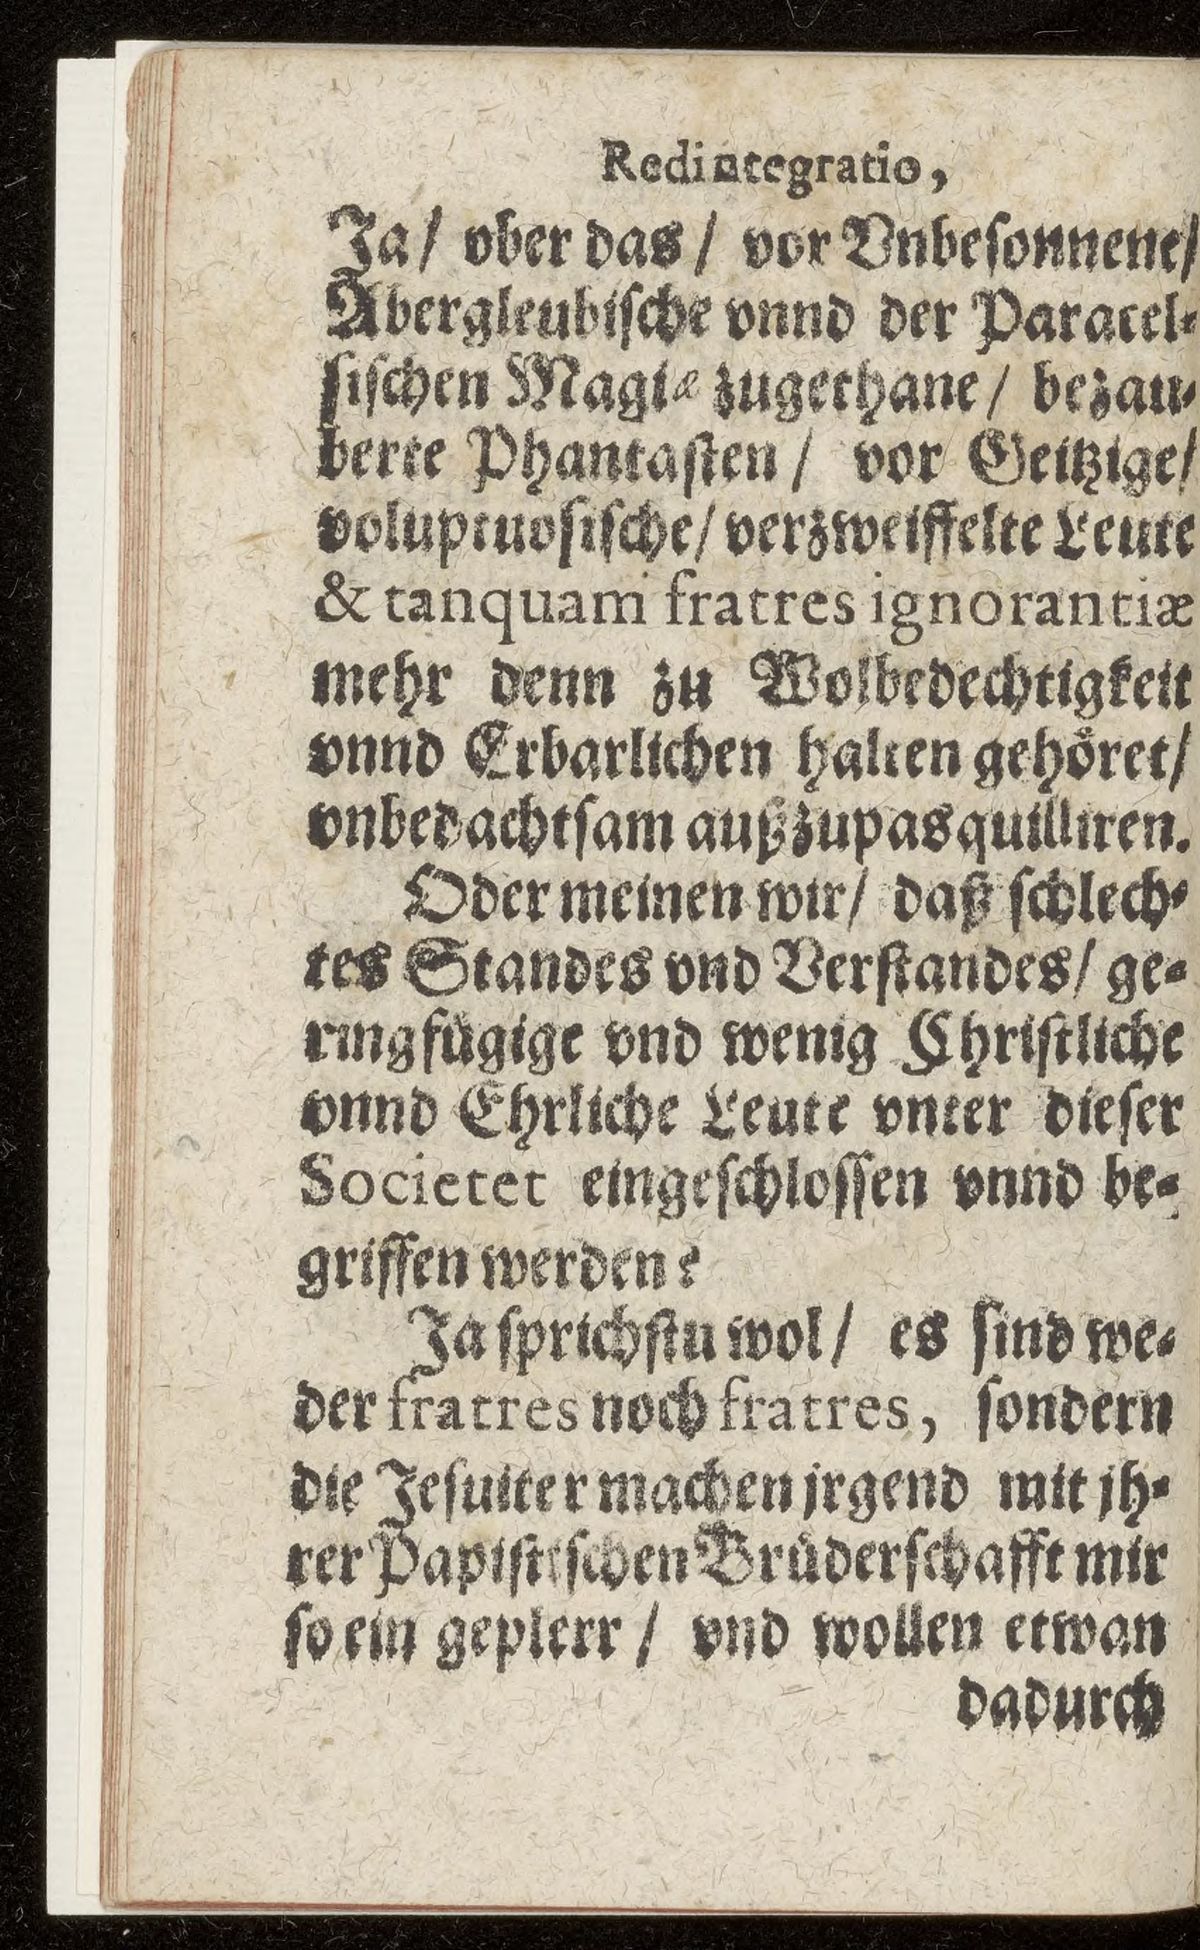 Redintegratio,
Ja/ vber das/ vor Vnbesonnene/
Abergleubische vnnd der Paracel-
sischen Magiæ zugethane/ bezau-
berte Phantasten/ vor Geitzige/
voluptuosische/ verzweiffelte Leute
& tanquam fratres ignorantiæ
mehr denn zu Wolbedechtigkeit
vnnd Erbarlichen halten gehöret/
vnbedachtsam außzupasquilliren.
Oder meinen wir/ daß schlech-
tes Standes vnd Verstandes/ ge-
ringfügige vnd wenig Christliche
vnnd Ehrliche Leute vnter dieser
Societet eingeschlossen vnnd be-
griffen werden?
Ja sprichstu wol/ es sind we-
der fratres noch fratres, sondern
die Jesuiter machen jrgend mit jh-
rer Papistischen Brüderschafft mir
so ein geplerr/ vnd wollen etwan
dadurch